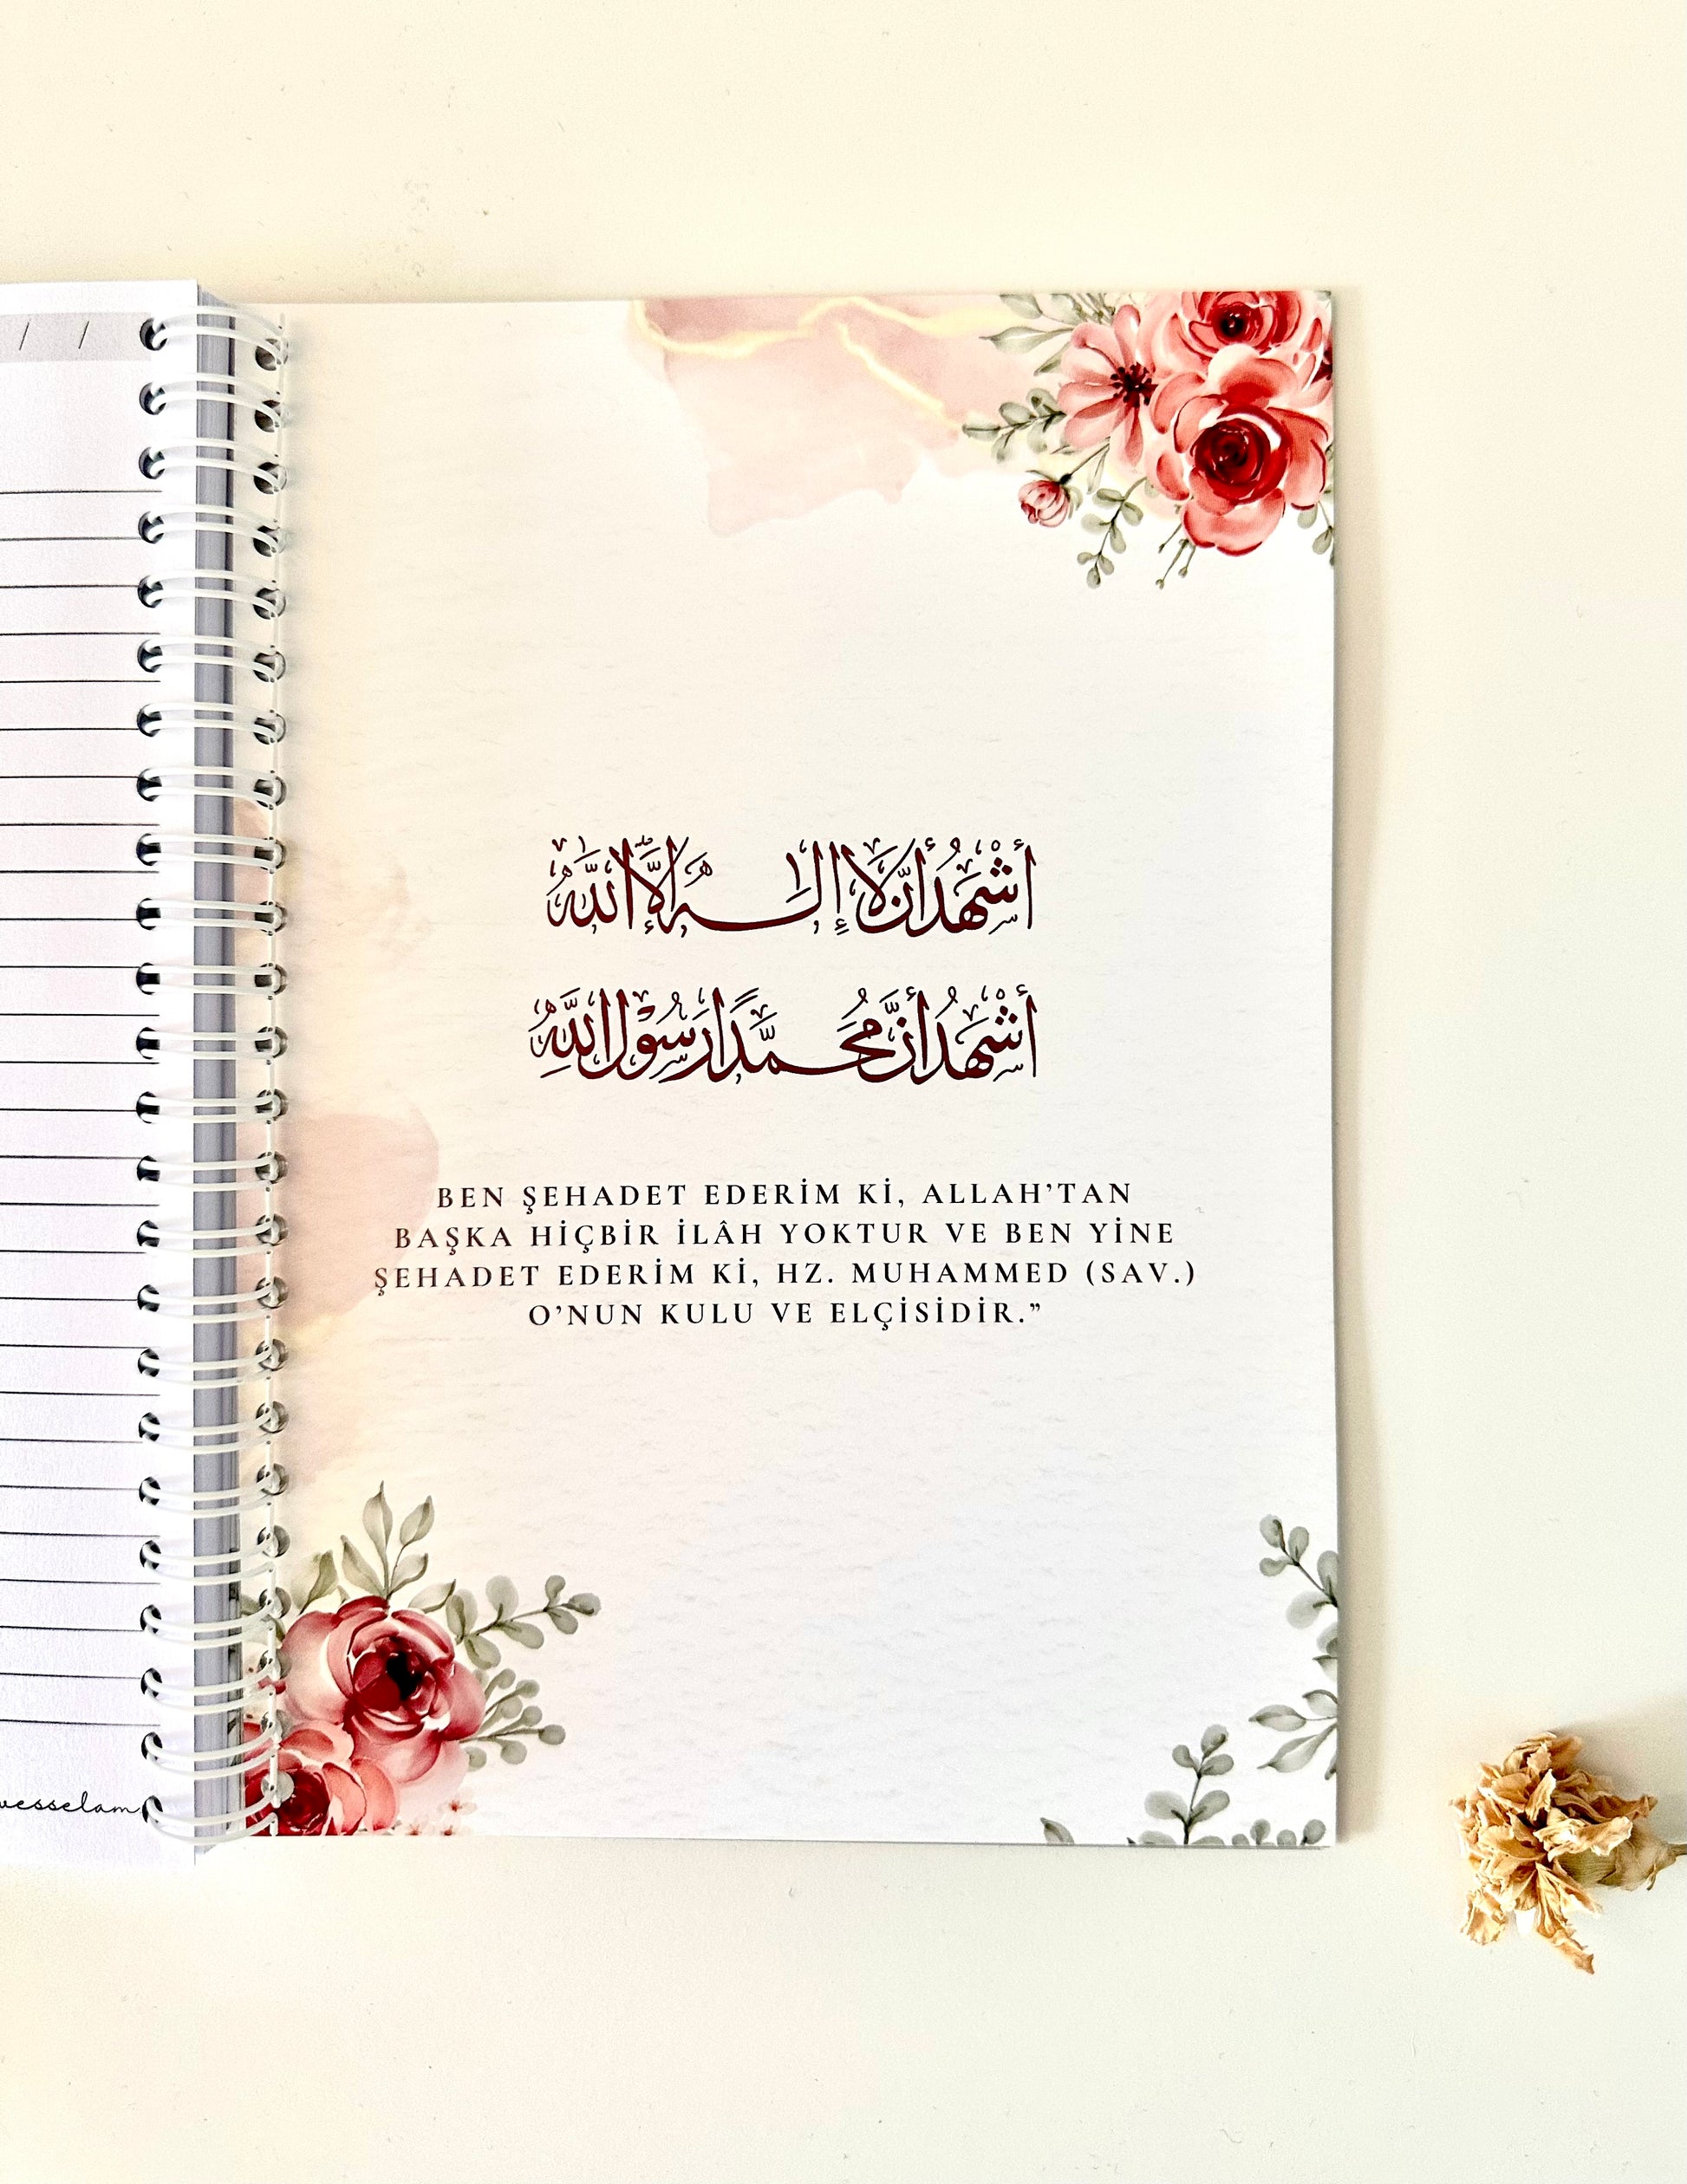 / /
أشْهَدُ أَنْ لَا إِلٰهَ إِلَّا اللهُ
أشْهَدُ أَنَّ مُحَمَّدًا رَسُوْلُ اللهِ
BEN ŞEHADET EDERİM Kİ, ALLAH’TAN
BAŞKA HİÇBİR İLÂH YOKTUR VE BEN YİNE
ŞEHADET EDERİM Kİ, HZ. MUHAMMED (SAV.)
O’NUN KULU VE ELÇİSİDİR.”
vesselam